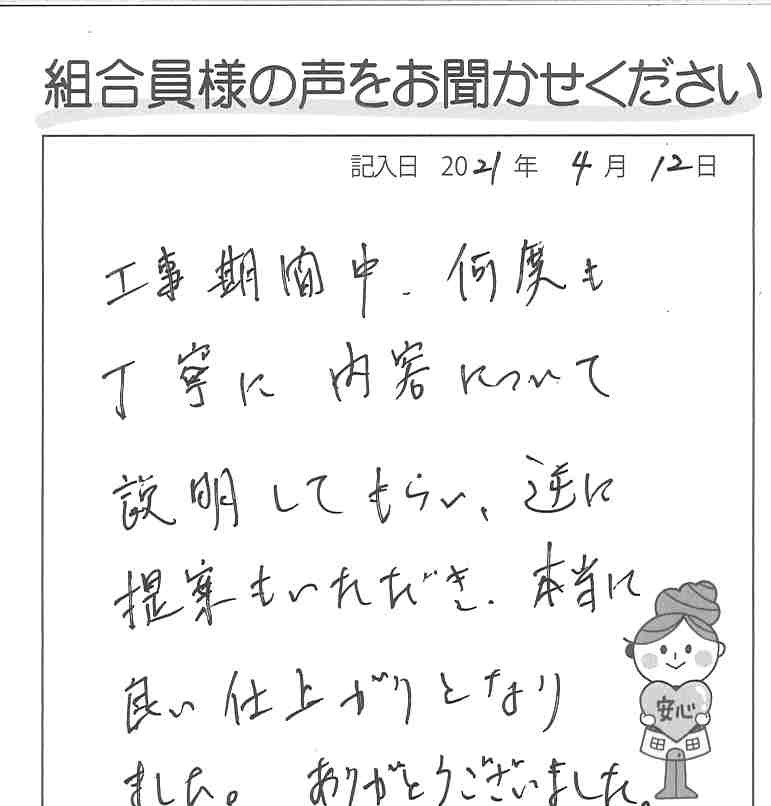 組合員様の声をお聞かせください
記入日 2021年 4月 12日
工事期間中、何度も
丁寧に 内容について
説明してもらい、逆に
提案もいただき、本当に
良い仕上がりとなり
安心
ました。ありがとうございました。